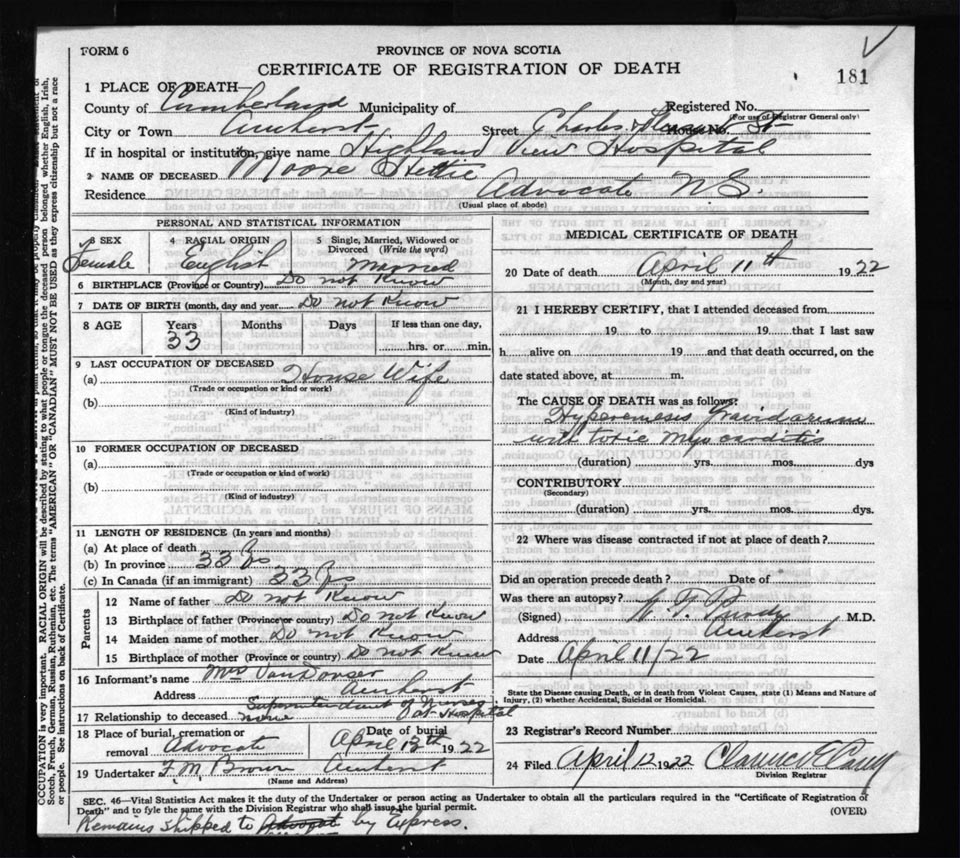 FORM 6
PROVINCE OF NOVA SCOTIA
CERTIFICATE OF REGISTRATION OF DEATH
181
1 PLACE OF DEATH—
County of Cumberland Municipality of Registered No.
(For use of Registrar General only)
City or Town Amherst Street Charles & Pleasant St House No.
If in hospital or institution, give name Highland View Hospital
2 NAME OF DECEASED Moore Hettie
Residence Advocate N.S.
(Usual place of abode)
PERSONAL AND STATISTICAL INFORMATION
3 SEX 4 RACIAL ORIGIN 5 Single, Married, Widowed or Divorced (Write the word)
Female English Married
6 BIRTHPLACE (Province or Country) Do not Know
7 DATE OF BIRTH (month, day and year) Do not Know
8 AGE Years Months Days If less than one day,
33 hrs. or min.
9 LAST OCCUPATION OF DECEASED
(a) House Wife
(Trade or occupation or kind or work)
(b)
(Kind of industry)
10 FORMER OCCUPATION OF DECEASED
(a)
(Trade or occupation or kind of work)
(b)
(Kind of industry)
11 LENGTH OF RESIDENCE (In years and months)
(a) At place of death
(b) In province 33 yrs
(c) In Canada (if an immigrant) 33 yrs
Parents
12 Name of father Do not Know
13 Birthplace of father (Province or country) Do not Know
14 Maiden name of mother Do not Know
15 Birthplace of mother (Province or country) Do not Know
16 Informant's name Mrs
Address Amherst
Superintendent of Nurses
17 Relationship to deceased none at Hospital
18 Place of burial, cremation or removal Advocate Date of burial April 12th 1922
19 Undertaker F. M. Brown Amherst
(Name and Address)
MEDICAL CERTIFICATE OF DEATH
20 Date of death April 11th 1922
(Month, day and year)
21 I HEREBY CERTIFY, that I attended deceased from
19 to 19 that I last saw
h alive on 19 and that death occurred, on the
date stated above, at m.
The CAUSE OF DEATH was as follows:
Hyperemesis gravidarum
with toxic myocarditis
(duration) yrs. mos. dys
CONTRIBUTORY
(Secondary)
(duration) yrs. mos. dys.
22 Where was disease contracted if not at place of death?
Did an operation precede death? Date of
Was there an autopsy?
(Signed) Purdy M.D.
Address Amherst
Date April 11/22
State the Disease causing Death, or in death from Violent Causes, state (1) Means and Nature of
Injury, (2) whether Accidental, Suicidal or Homicidal.
23 Registrar's Record Number
24 Filed April 12 1922 Clarence E Casey
Division Registrar
SEC. 46—Vital Statistics Act makes it the duty of the Undertaker or person acting as Undertaker to obtain all the particulars required in the "Certificate of Registration of
Death" and to fyle the same with the Division Registrar who shall issue the burial permit.
(OVER)
Remains shipped to Advocate by Express.
OCCUPATION is very important. RACIAL ORIGIN will be described by stating to what people or tongue the deceased person belonged whether English, Irish,
Scotch, French, German, Russian, Ruthenian, etc. The terms "AMERICAN" OR "CANADIAN" MUST NOT BE USED as they express citizenship but not a race
or people. See instructions on back of Certificate.